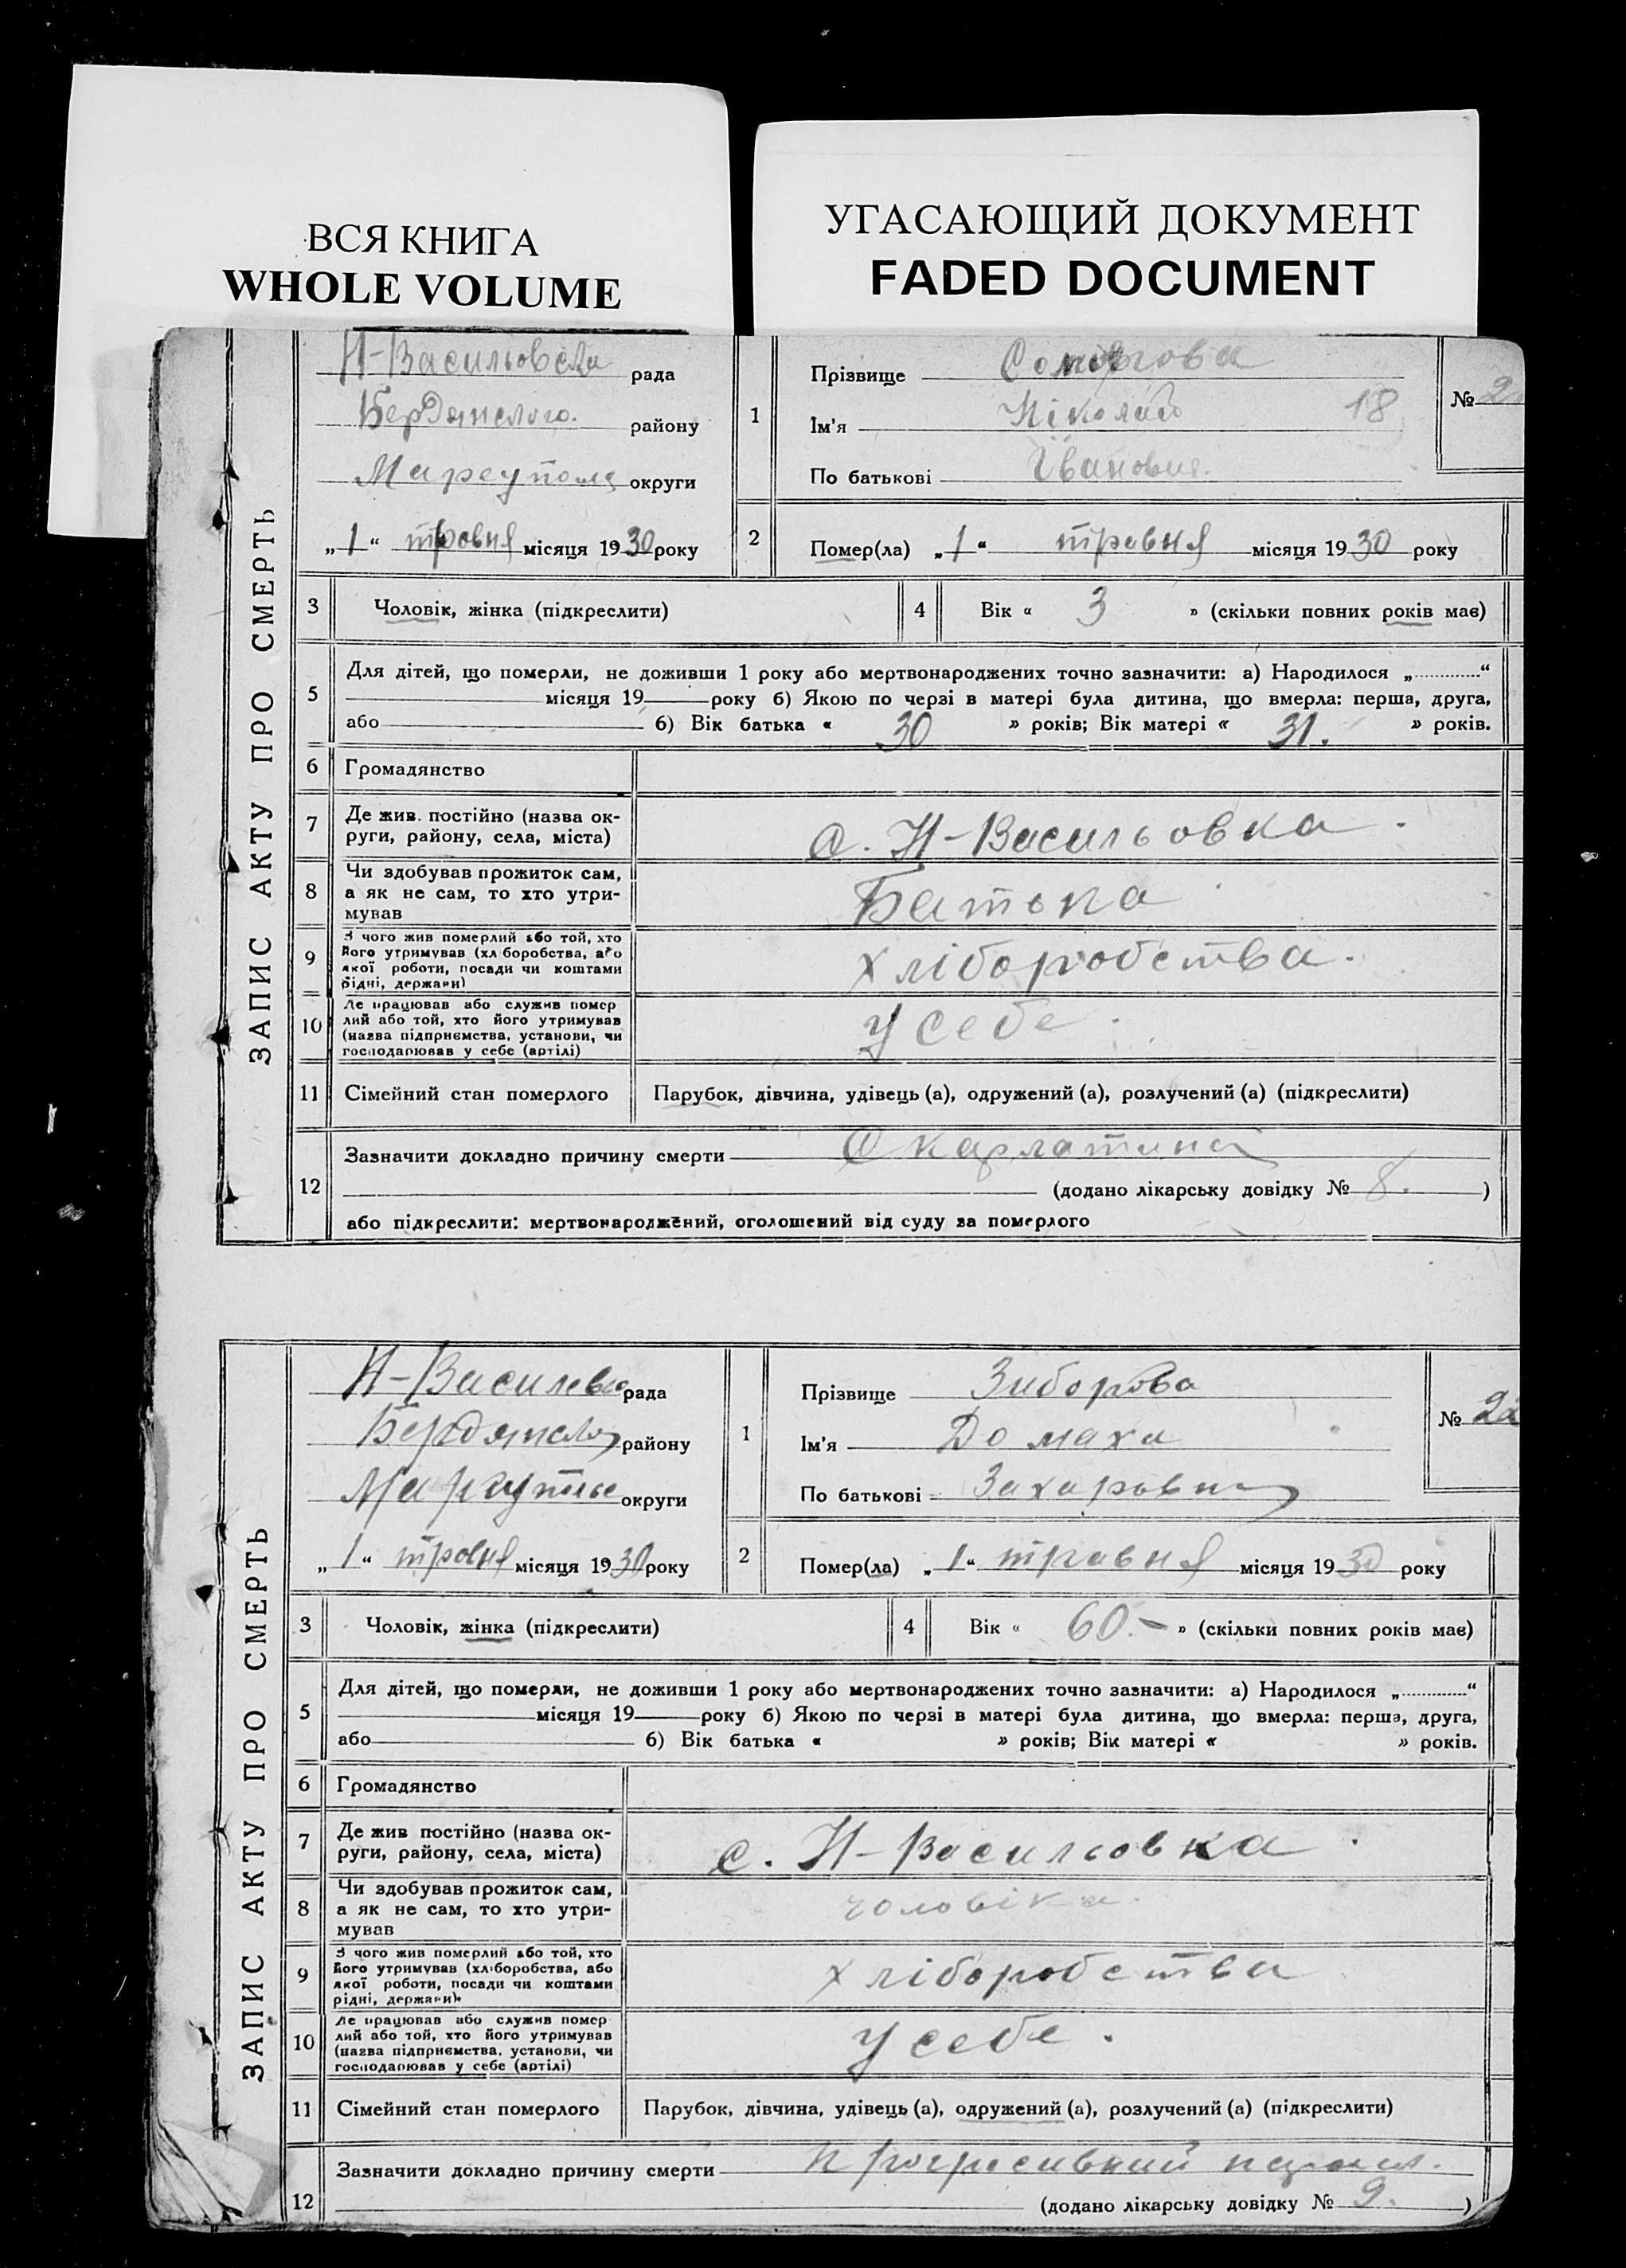 ВСЯ КНИГА
WHOLE VOLUME
УГАСАЮЩИЙ ДОКУМЕНТ
FADED DOCUMENT
ЗАПИС АКТУ ПРО СМЕРТЬ
Н-Васильовська рада
Бердянського району
округи
„1“ тровня місяця 1930 року
1
Прізвище
Ім'я 18
По батькові
№ 2
2
Помер(ла) „1“ травня місяця 1930 року
3 Чоловік, жінка (підкреслити)
4 Вік « 3 » (скільки повних років має)
5 Для дітей, що померли, не доживши 1 року або мертвонароджених точно зазначити: а) Народилося „ “
місяця 19 року б) Якою по черзі в матері була дитина, що вмерла: перша, друга,
або б) Вік батька « 30 » років; Вік матері « 31. » років.
6 Громадянство
7 Де жив. постійно (назва ок-
руги, району, села, міста)
с. Н-Васильовка.
8 Чи здобував прожиток сам,
а як не сам, то хто утри-
мував
Батька
9 З чого жив померлий або той, хто
його утримував (хліборобства, або
якої роботи, посади чи коштами
рідні, держави)
хліборобства.
10 Де працював або служив помер
лий або той, хто його утримував
(назва підприємства, установи, чи
господарював у себе (артілі)
у себе.
11 Сімейний стан померлого Парубок, дівчина, удівець (а), одружений (а), розлучений (а) (підкреслити)
12 Зазначити докладно причину смерти Скарлатина
(додано лікарську довідку № 8. )
або підкреслити: мертвонароджений, оголошений від суду за померлого
ЗАПИС АКТУ ПРО СМЕРТЬ
рада
району
округи
„1“ тровня місяця 1930 року
1
Прізвище Зиборова
Ім'я Домаха
По батькові Захаровна
№ 22
2
Помер(ла) „1“ травня місяця 1930 року
3 Чоловік, жінка (підкреслити)
4 Вік « 60.- » (скільки повних років має)
5 Для дітей, що померли, не доживши 1 року або мертвонароджених точно зазначити: а) Народилося „ “
місяця 19 року б) Якою по черзі в матері була дитина, що вмерла: перша, друга,
або б) Вік батька « » років; Вік матері « » років.
6 Громадянство
7 Де жив постійно (назва ок-
руги, району, села, міста)
с. Н-Васильовка.
8 Чи здобував прожиток сам,
а як не сам, то хто утри-
мував
чоловіка.
9 З чого жив померлий або той, хто
його утримував (хліборобства, або
якої роботи, посади чи коштами
рідні, держави)
хліборобства
10 Де працював або служив помер
лий або той, хто його утримував
(назва підприємства, установи, чи
господарював у себе (артілі)
у себе.
11 Сімейний стан померлого Парубок, дівчина, удівець (а), одружений (а), розлучений (а) (підкреслити)
12 Зазначити докладно причину смерти
(додано лікарську довідку № 9. )